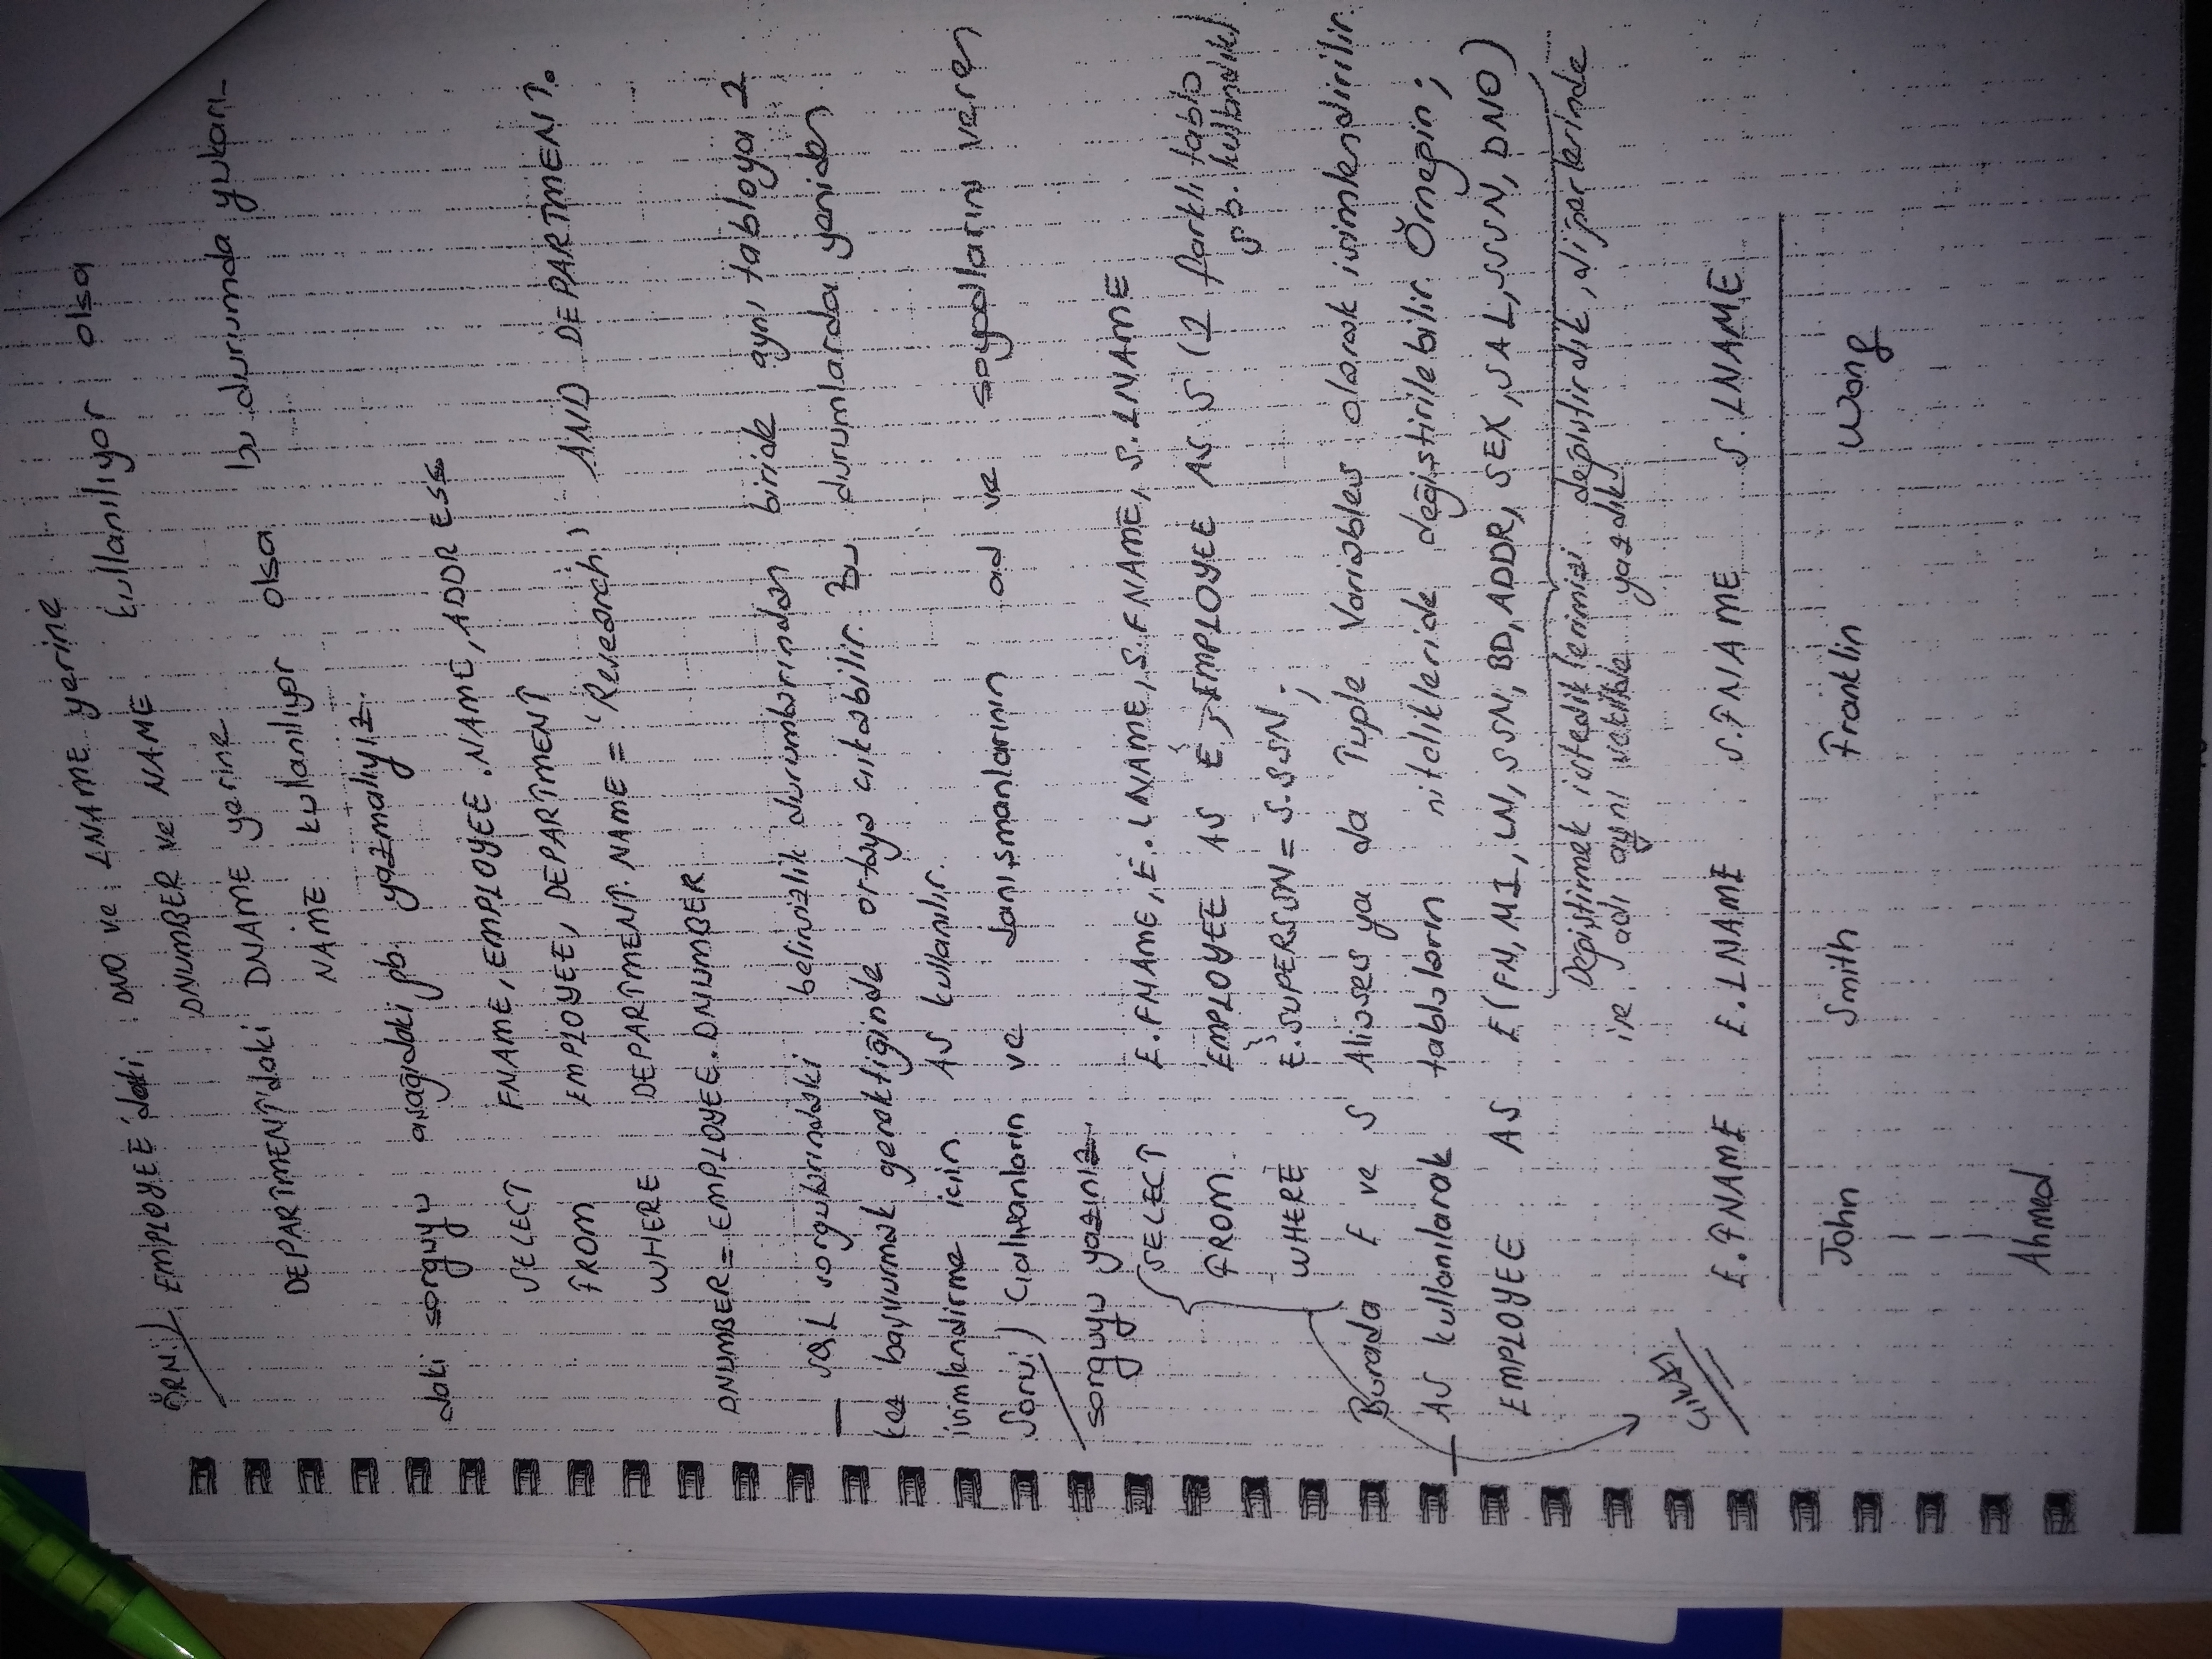 ÖRN:) EMPLOYEE'daki DNO ve LNAME yerine
DNUMBER ve NAME kullanılıyor olsa
DEPARTMENT'daki DNAME yerine
NAME kullanılıyor olsa bu durumda yukarı-
daki sorguyu aşağıdaki gb. yazmalıyız.
SELECT FNAME, EMPLOYEE.NAME, ADDRESS
FROM EMPLOYEE, DEPARTMENT
WHERE DEPARTMENT.NAME = 'Research' AND DEPARTMENT.
DNUMBER = EMPLOYEE.DNUMBER
— SQL sorgularındaki belirsizlik durumlarından biride aynı tabloya 2
kez başvurmak gerektiğinde ortaya çıkabilir. Bu durumlarda yeniden
isimlendirme için AS kullanılır.
Soru:) Çalışanların ve danışmanlarının ad ve soyadlarını veren
sorguyu yazınız.
SELECT E.FNAME, E.LNAME, S.FNAME, S.LNAME
FROM EMPLOYEE AS E, EMPLOYEE AS S (2 farklı tablo
gb. kullandık)
WHERE E.SUPERSSN = S.SSN;
Burada E ve S Aliases ya da Tuple Variables olarak isimlendirilir.
— AS kullanılarak tabloların nitelikleride değiştirilebilir. Örneğin;
EMPLOYEE AS E(FN, MI, LN, SSN, BD, ADDR, SEX, SAL, SSSN, DNO)
Değiştirmek istediklerimizi değiştirdik, diğerlerinde
ise adı aynı şekilde yazdık.
Çıktı
E.FNAME E.LNAME S.FNAME S.LNAME
John Smith Franklin Wong
Ahmed.